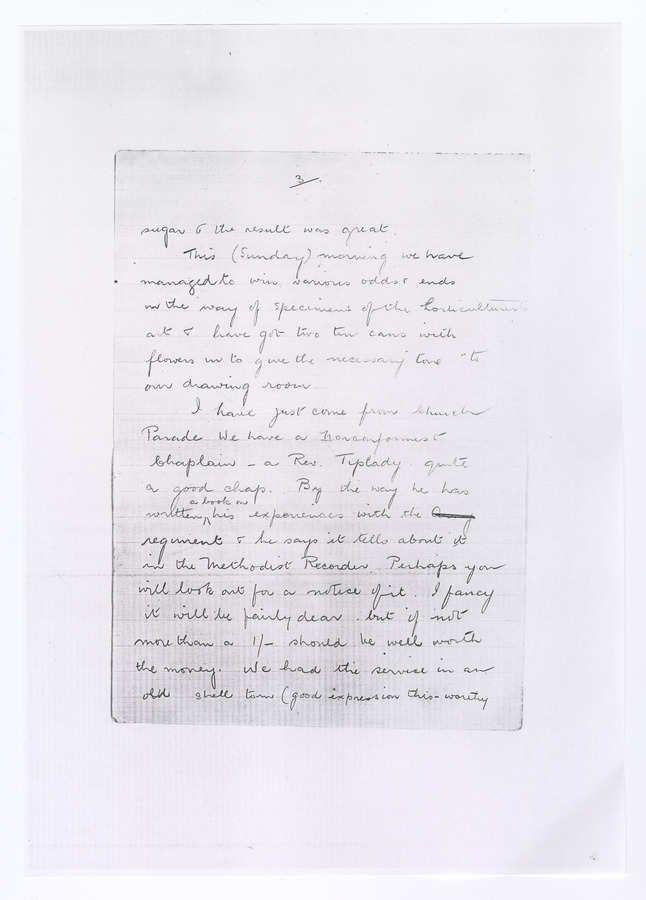 3.
sugar & the result was great.
This (Sunday) morning we have
managed to win various odds & ends
in the way of specimens of the horticulturists
art & have got two tin cans with
flowers in to give the necessary tone "to
our drawing room.
I have just come from Church
Parade. We have a Nonconformist
Chaplain - a Rev. Tiplady. quite
a good chap. By the way he has
a book on
written, his experiences with the Army
regiment & he says it tells about it
in the Methodist Recorder. Perhaps you
will look out for a notice of it. I fancy
it will be fairly dear. but if not
more than a 1/- should be well worth
the money. We had the service in an
old shell torn (good expression this - worthy